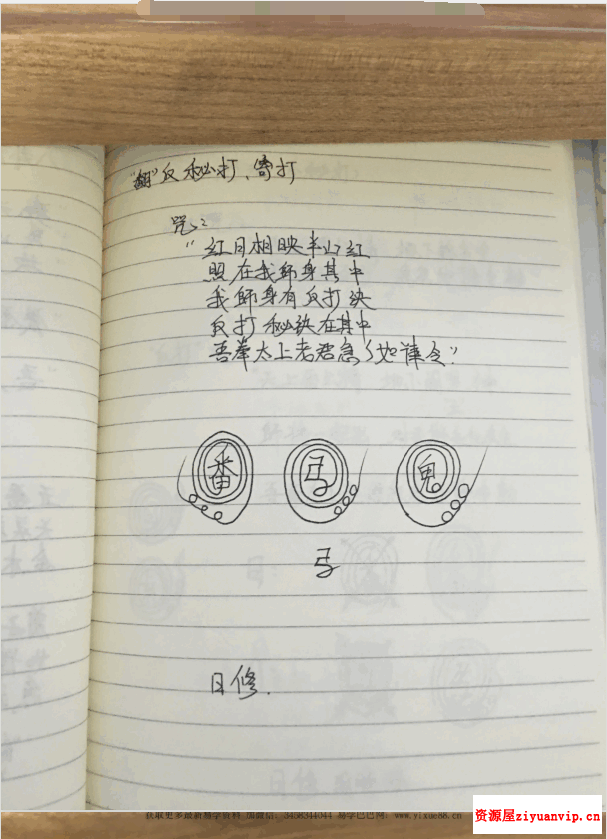 "翻"反秘打、寄打
咒:
"红日相映半山红
照在我師身其中
我師身有反打決
反打秘訣在其中
吾奉太上老君急了如律令"
番 弓 鬼
弓
日修.
获取更多最新易学资料 加微信: 3458344044 易学巴巴网: www.yixue88.cn
资源屋ziyuanvip.cn